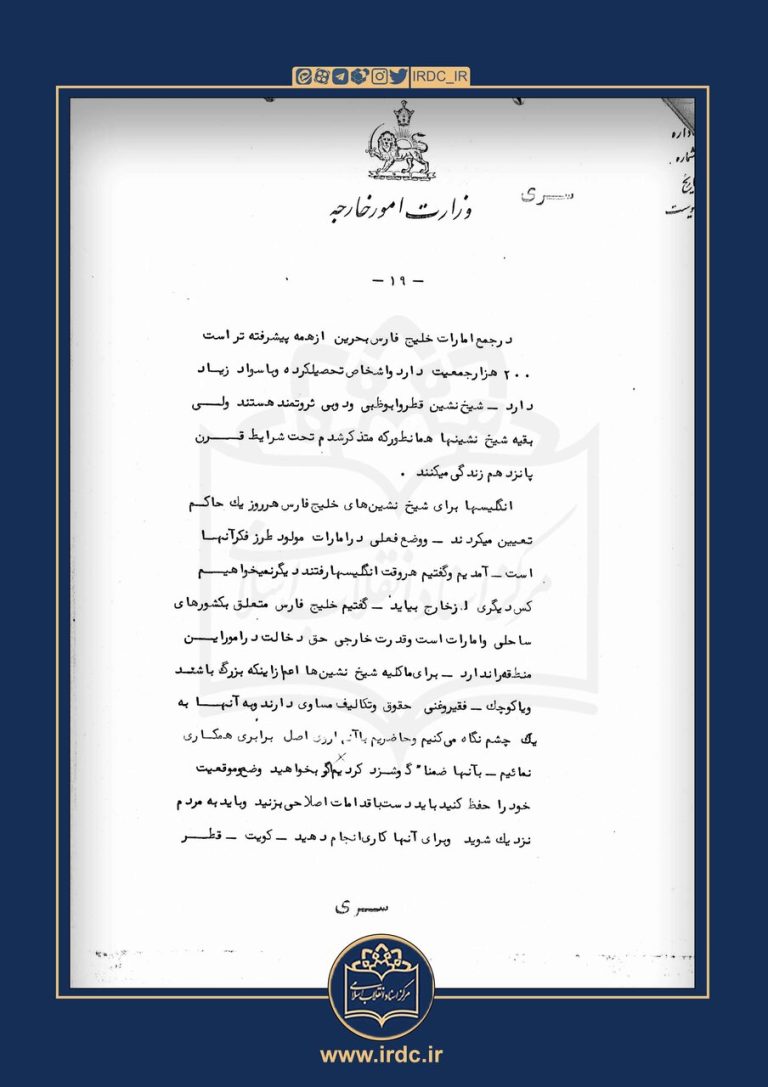 IRDC_IR
اداره
شماره
تاریخ
پیوست
سری
وزارت امور خارجه
- ۱۹ -
در جمع امارات خلیج فارس بحرین از همه پیشرفته تر است
۲۰۰ هزار جمعیت دارد و اشخاص تحصیلکرده و با سواد زیاد
دارد - شیخ نشین قطر و ابوظبی و دوبی ثروتمند هستند ولی
بقیه شیخ نشینها همانطور که متذکر شدم تحت شرایط قرن
پانزدهم زندگی میکنند .
انگلیسها برای شیخ نشین‌های خلیج فارس هر روز یک حاکم
تعیین میکردند - و وضع فعلی در امارات مولود طرز فکر آنها
است - آمدیم و گفتیم هر وقت انگلیسها رفتند دیگر نمیخواهیم
کس دیگری از خارج بیاید - گفتیم خلیج فارس متعلق بکشورهای
ساحلی و امارات است و قدرت خارجی حق دخالت در امور این
منطقه را ندارد - برای ما کلیه شیخ نشین‌ها اعم از اینکه بزرگ باشند
و یا کوچک - فقیر و غنی حقوق و تکالیف مساوی دارند و به آنها به
یک چشم نگاه می‌کنیم و حاضریم با آنها روی اصل برابری همکاری
نمائیم - بآنها ضمناً گوشزد کردیم اگر بخواهید وضع و موقعیت
خود را حفظ کنید باید دست باقدامات اصلاحی بزنید و باید به مردم
نزدیک شوید و برای آنها کاری انجام دهید - کویت - قطر
سری
مرکز اسناد انقلاب اسلامی
www.irdc.ir